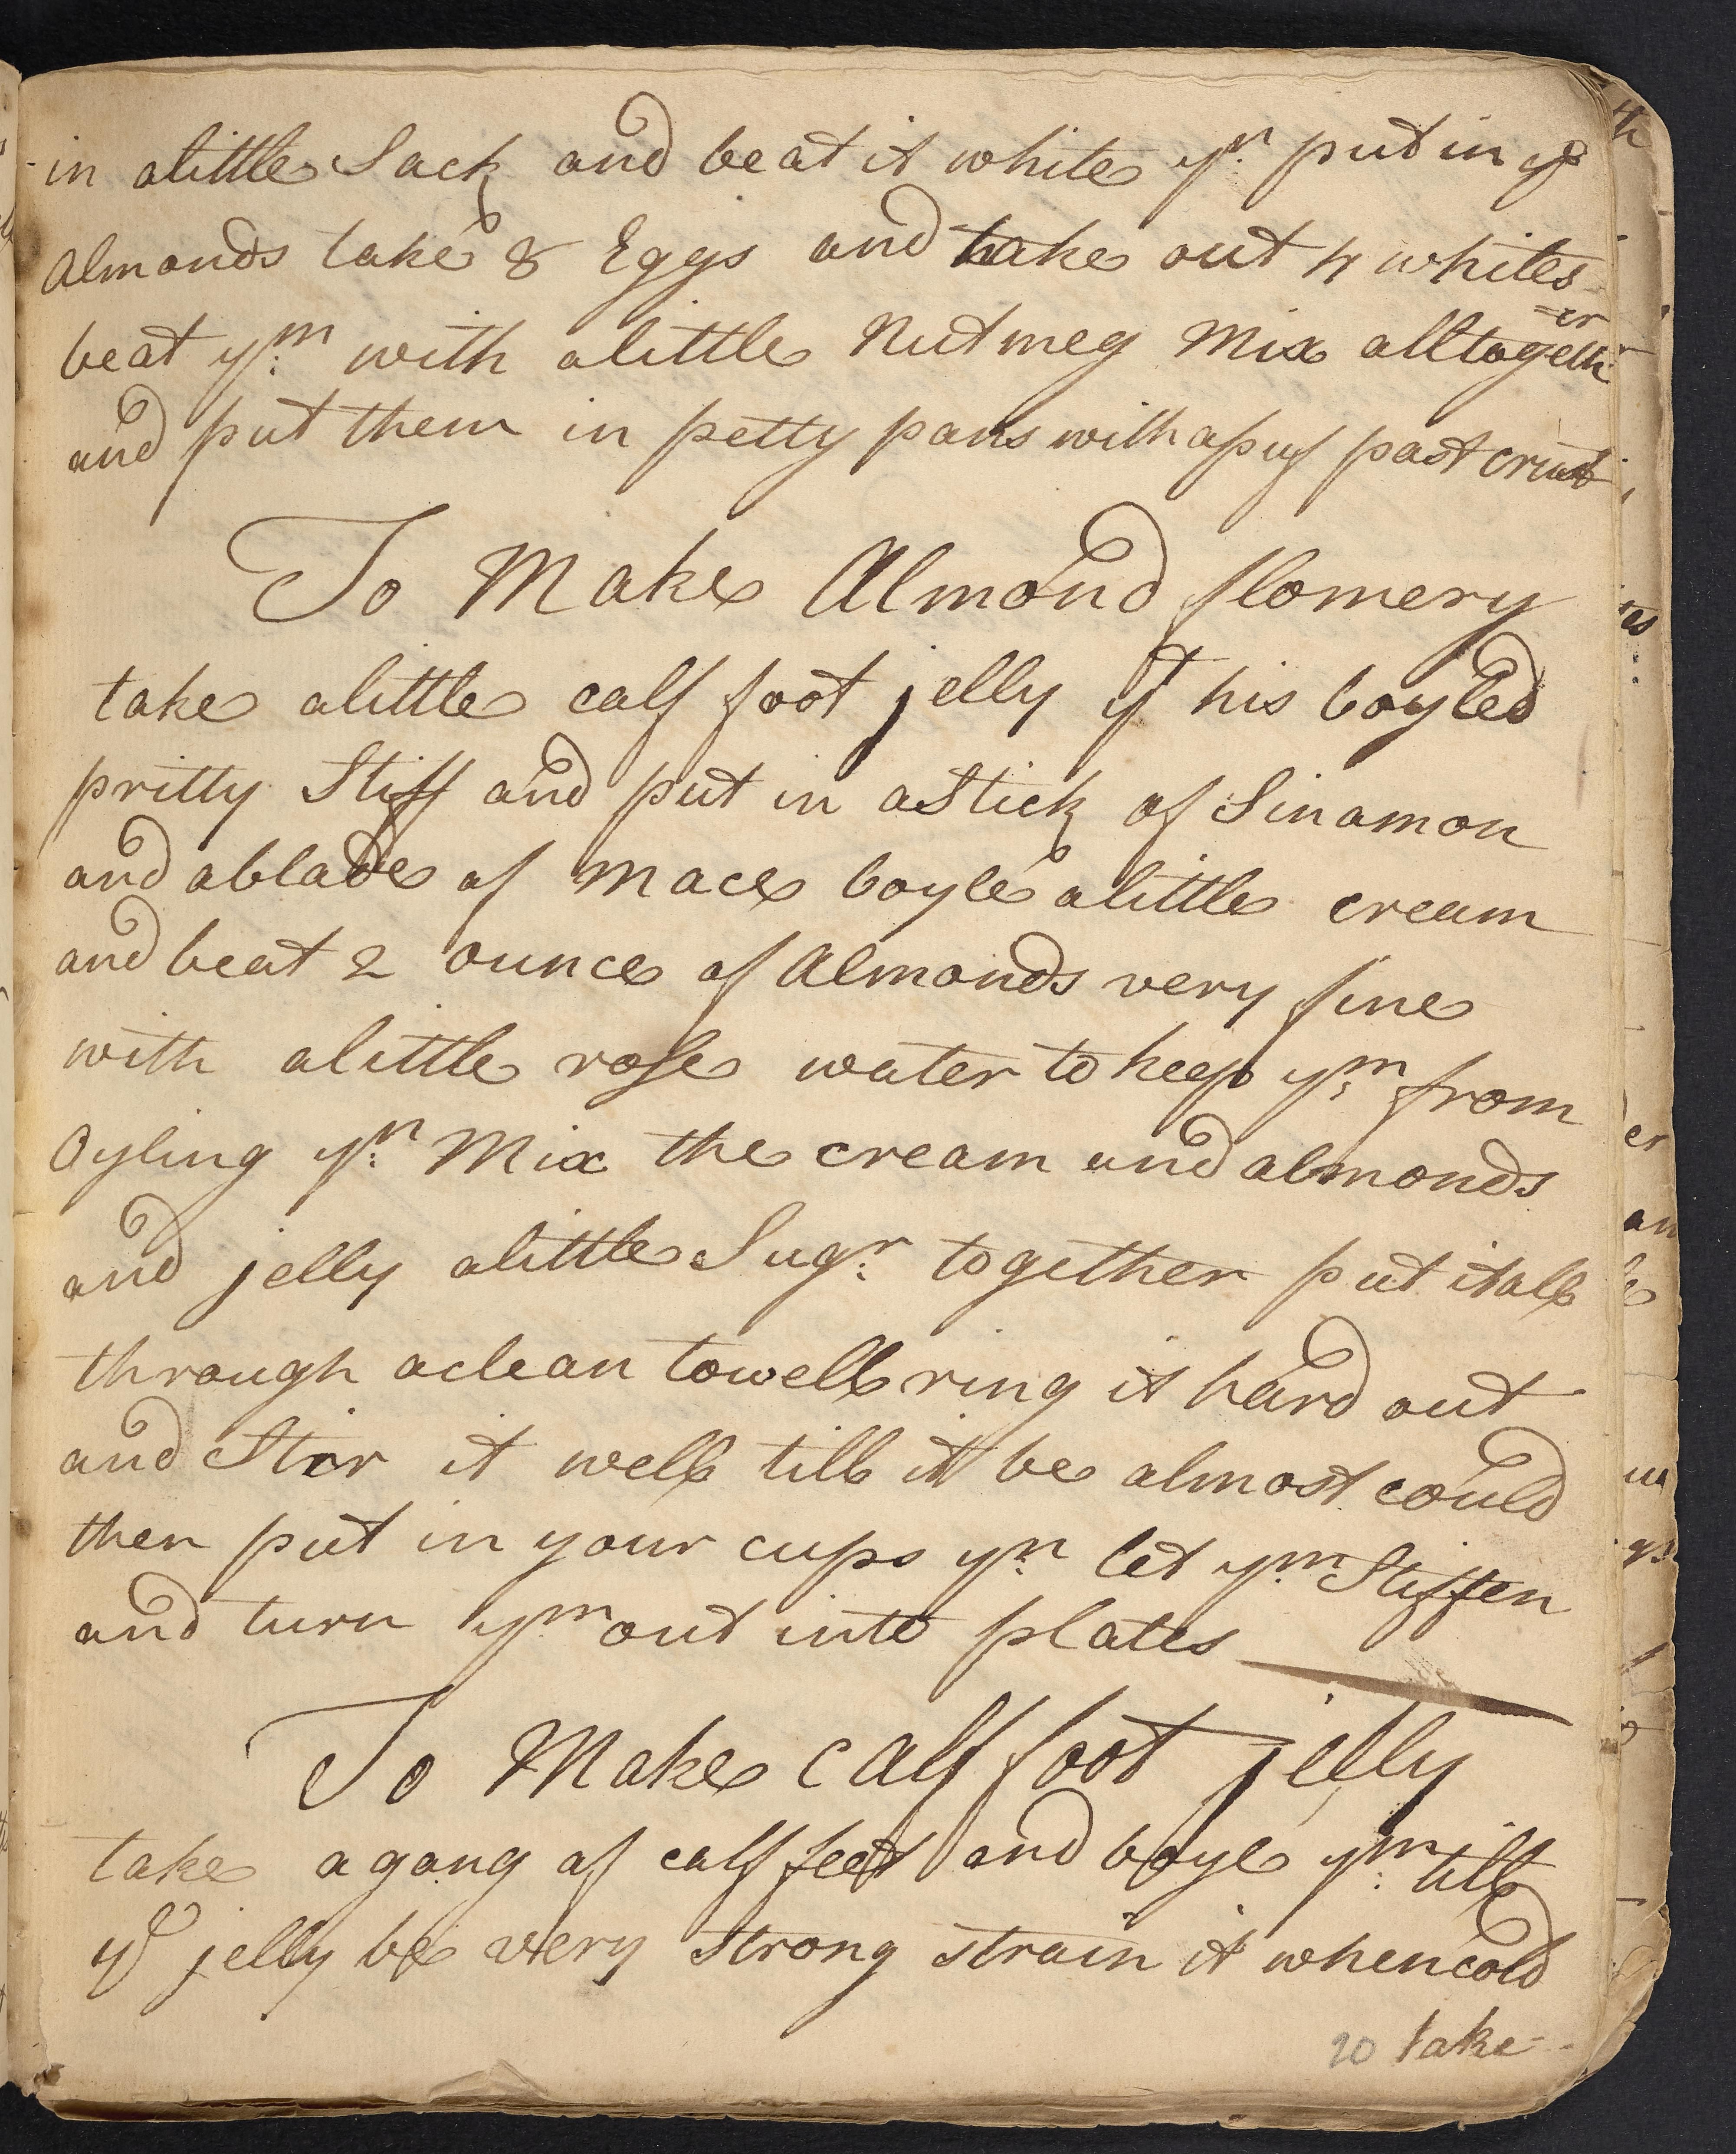 in alittle Sack and beat it white yn. put in ye
Almonds take 8 Eggs and take out 4 whites
beat ym. with alittle Nutmeg Mix alltogeth=er
and put them in petty pans with apuf past crust
To Make Almond flomery
take alittle calf foot jelly yt his boyled
pritty Stiff and put in aStick of Sinamon
and ablade of Mace boyle alittle cream
and beat 2 ounce of Almonds very fine
with alittle rose water to keep ym. from
Oyling yn. Mix the cream and almonds
and jelly alittle Sugr. together put itall
through aclean towell ring it hard out
and Stir it well till it be almost could
then put in your cups yn. let ym. Stiffen
and turn ym out into plates
To Make CAlf foot jelly
take agang of calf feet and boyle ym. till
ye jelly be very Strong strain it whencold
20 take